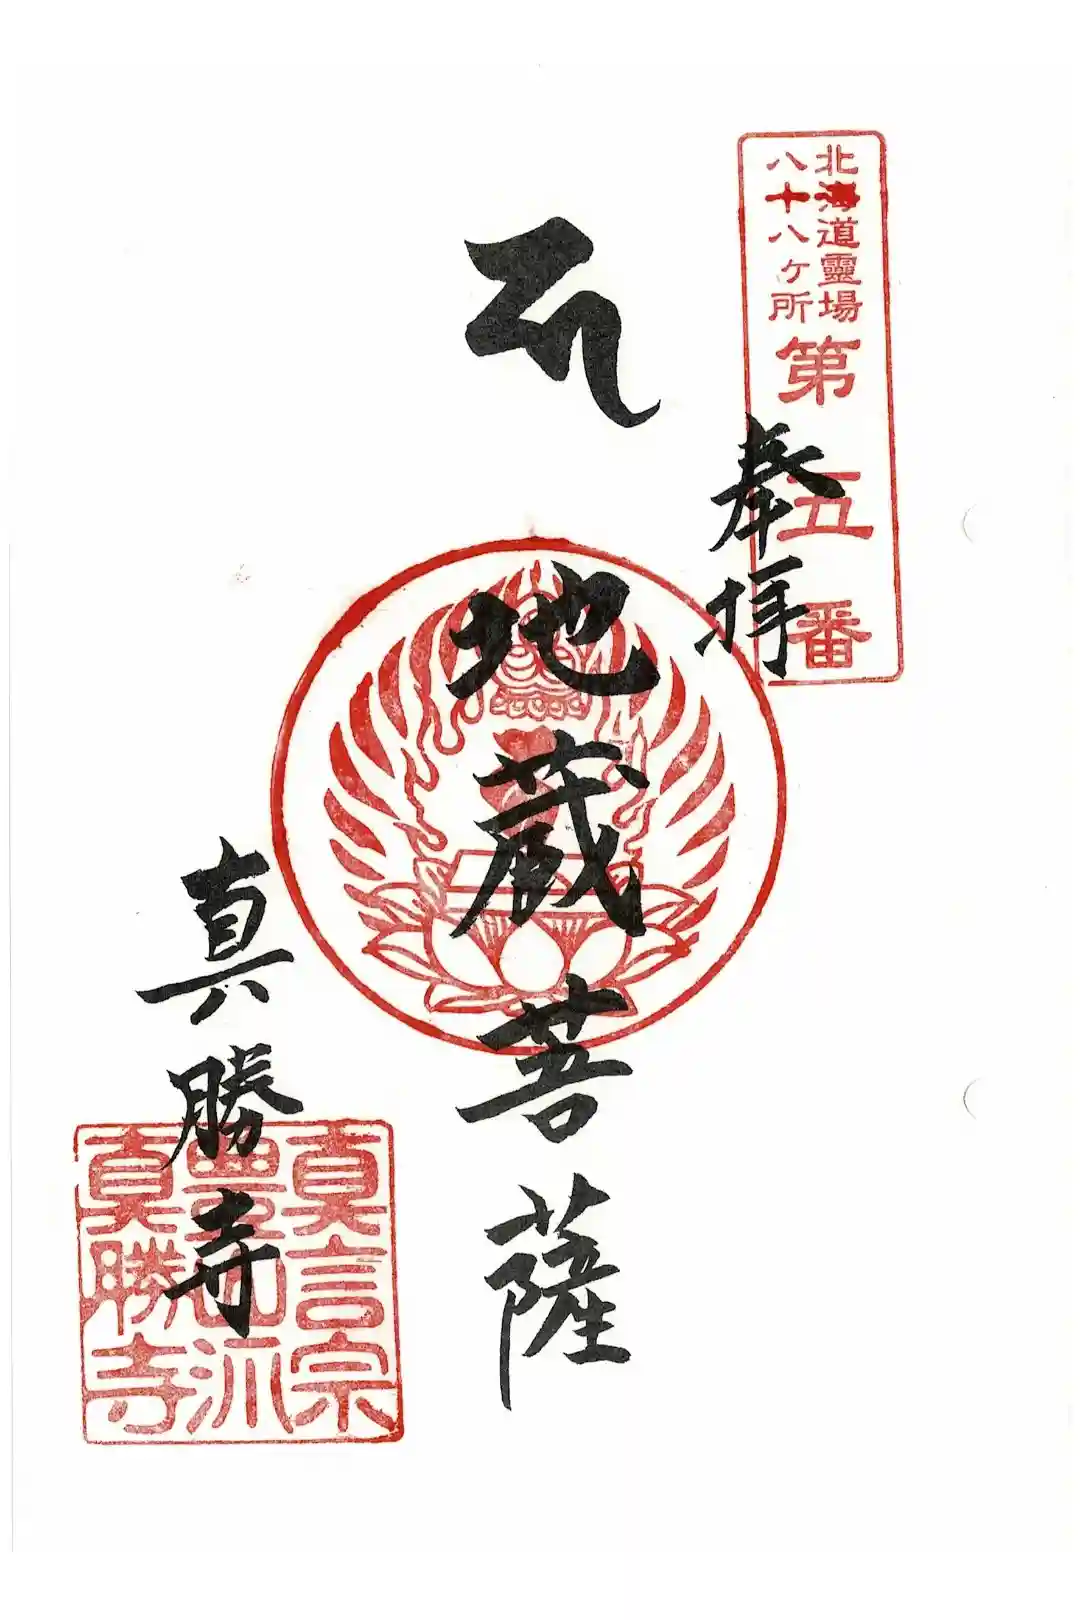 北海道靈場
八十八ヶ所
第五番
奉拝
地蔵菩薩
真勝寺
真言宗
豊山派
真勝寺